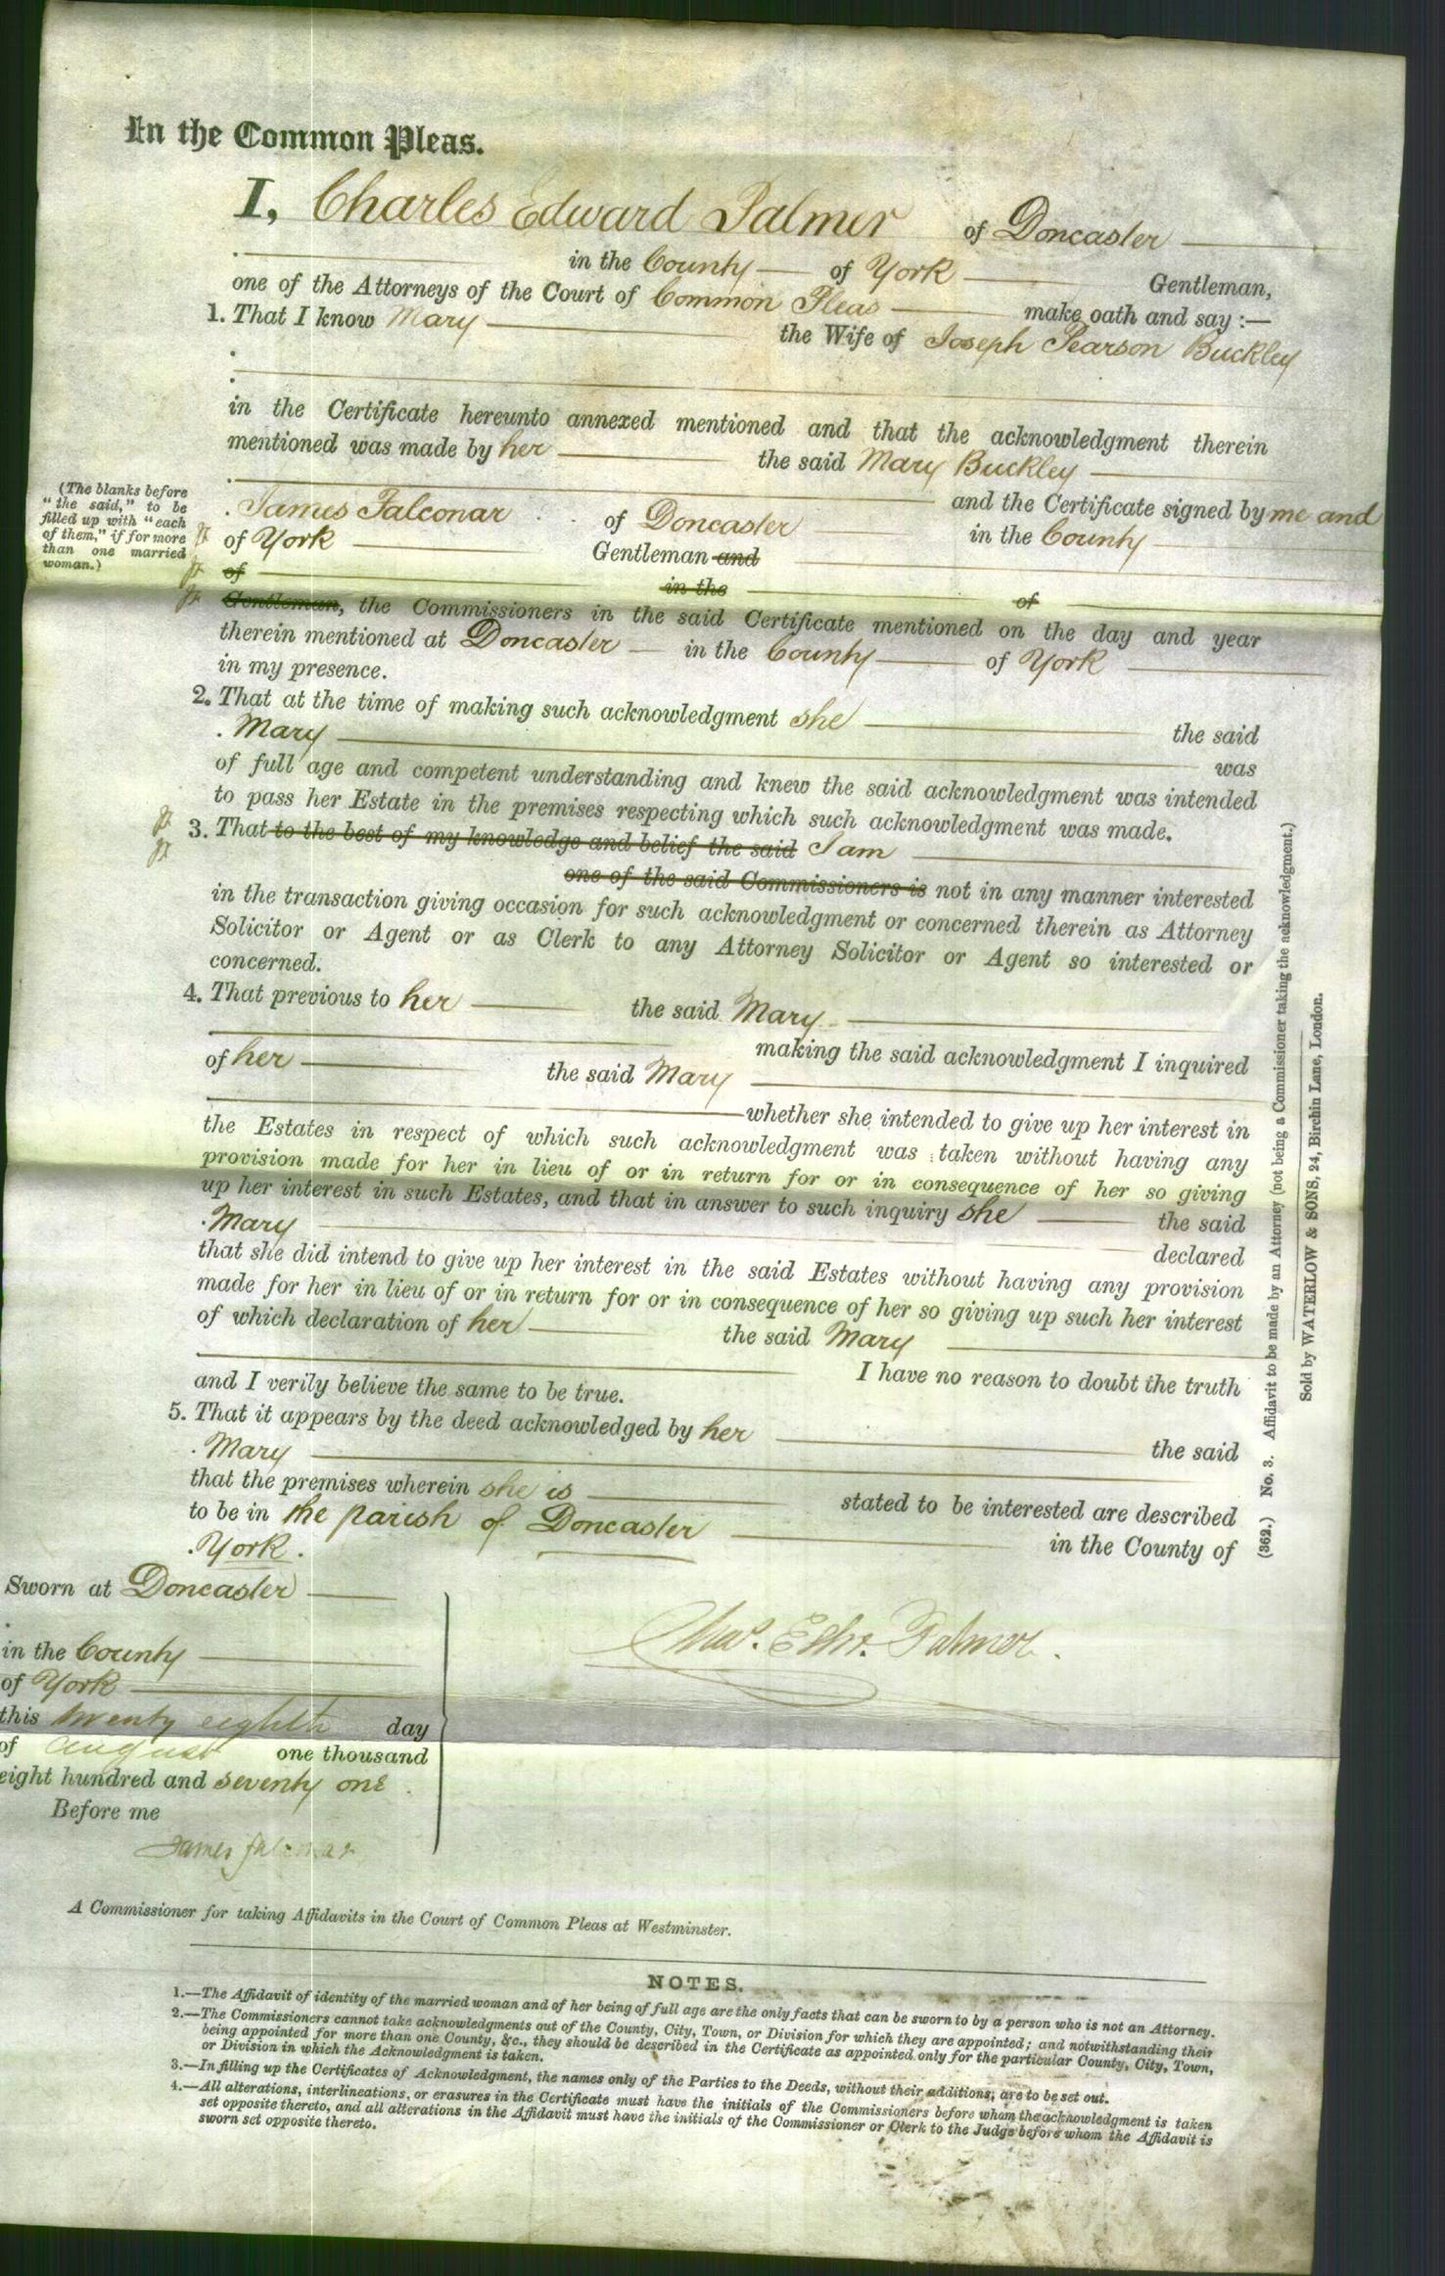 In the Common Pleas.
I, Charles Edward Palmer of Doncaster
in the County of York Gentleman,
one of the Attorneys of the Court of Common Pleas make oath and say :—
1. That I know Mary the Wife of Joseph Pearson Buckley
in the Certificate hereunto annexed mentioned and that the acknowledgment therein
mentioned was made by her the said Mary Buckley
and the Certificate signed by me and
James Falconar of Doncaster in the County
of York Gentleman and
of in the of
Gentleman, the Commissioners in the said Certificate mentioned on the day and year
therein mentioned at Doncaster in the County of York
in my presence.
(The blanks before
"the said," to be
filled up with "each
of them," if for more
than one married
woman.)
2. That at the time of making such acknowledgment she the said
Mary was
of full age and competent understanding and knew the said acknowledgment was intended
to pass her Estate in the premises respecting which such acknowledgment was made.
3. That to the best of my knowledge and belief the said I am
one of the said Commissioners is not in any manner interested
in the transaction giving occasion for such acknowledgment or concerned therein as Attorney
Solicitor or Agent or as Clerk to any Attorney Solicitor or Agent so interested or
concerned.
4. That previous to her the said Mary
making the said acknowledgment I inquired
of her the said Mary
whether she intended to give up her interest in
the Estates in respect of which such acknowledgment was taken without having any
provision made for her in lieu of or in return for or in consequence of her so giving
up her interest in such Estates, and that in answer to such inquiry she the said
Mary declared
that she did intend to give up her interest in the said Estates without having any provision
made for her in lieu of or in return for or in consequence of her so giving up such her interest
of which declaration of her the said Mary
I have no reason to doubt the truth
and I verily believe the same to be true.
5. That it appears by the deed acknowledged by her the said
Mary
that the premises wherein she is stated to be interested are described
to be in the parish of Doncaster in the County of
York.
Sworn at Doncaster
in the County
of York
this twenty eighth day
of August one thousand
eight hundred and seventy one
Before me
James Falconar
Chas. Edw. Palmer.
A Commissioner for taking Affidavits in the Court of Common Pleas at Westminster.
NOTES.
1.—The Affidavit of identity of the married woman and of her being of full age are the only facts that can be sworn to by a person who is not an Attorney.
2.—The Commissioners cannot take acknowledgments out of the County, City, Town, or Division for which they are appointed; and notwithstanding their
being appointed for more than one County, &c., they should be described in the Certificate as appointed only for the particular County, City, Town,
or Division in which the Acknowledgment is taken.
3.—In filling up the Certificates of Acknowledgment, the names only of the Parties to the Deeds, without their additions, are to be set out.
4.—All alterations, interlineations, or erasures in the Certificate must have the initials of the Commissioners before whom the acknowledgment is taken
set opposite thereto, and all alterations in the Affidavit must have the initials of the Commissioner or Clerk to the Judge before whom the Affidavit is
sworn set opposite thereto.
(362.) No. 3. Affidavit to be made by an Attorney (not being a Commissioner taking the acknowledgment.)
Sold by WATERLOW & SONS, 24, Birchin Lane, London.